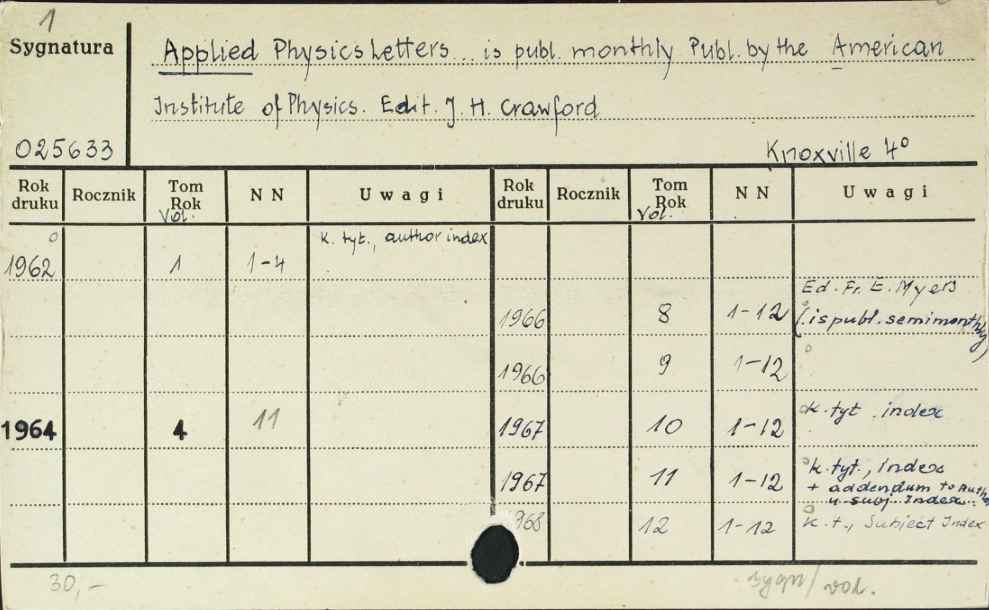 1
Sygnatura
Applied Physics Letters... is publ. monthly Publ. by the American
Institute of Physics. Edit. J. H. Crawford
025633
Knoxville 4°
Rok druku Rocznik Tom Rok Vol. N N Uwagi Rok druku Rocznik Tom Rok Vol. N N Uwagi
1962 1 1-4 k. tyt., author index
1966 8 1-12 Ed. Fr. E. Myers (is publ. semimonthly)
1966 9 1-12
1964 4 11 1967 10 1-12 k. tyt. index
1967 11 1-12 k. tyt., index
+ addendum to Auth
u subj Index
1968 12 1-12 k. t., Subject Index
30,-
sygn/ vol.